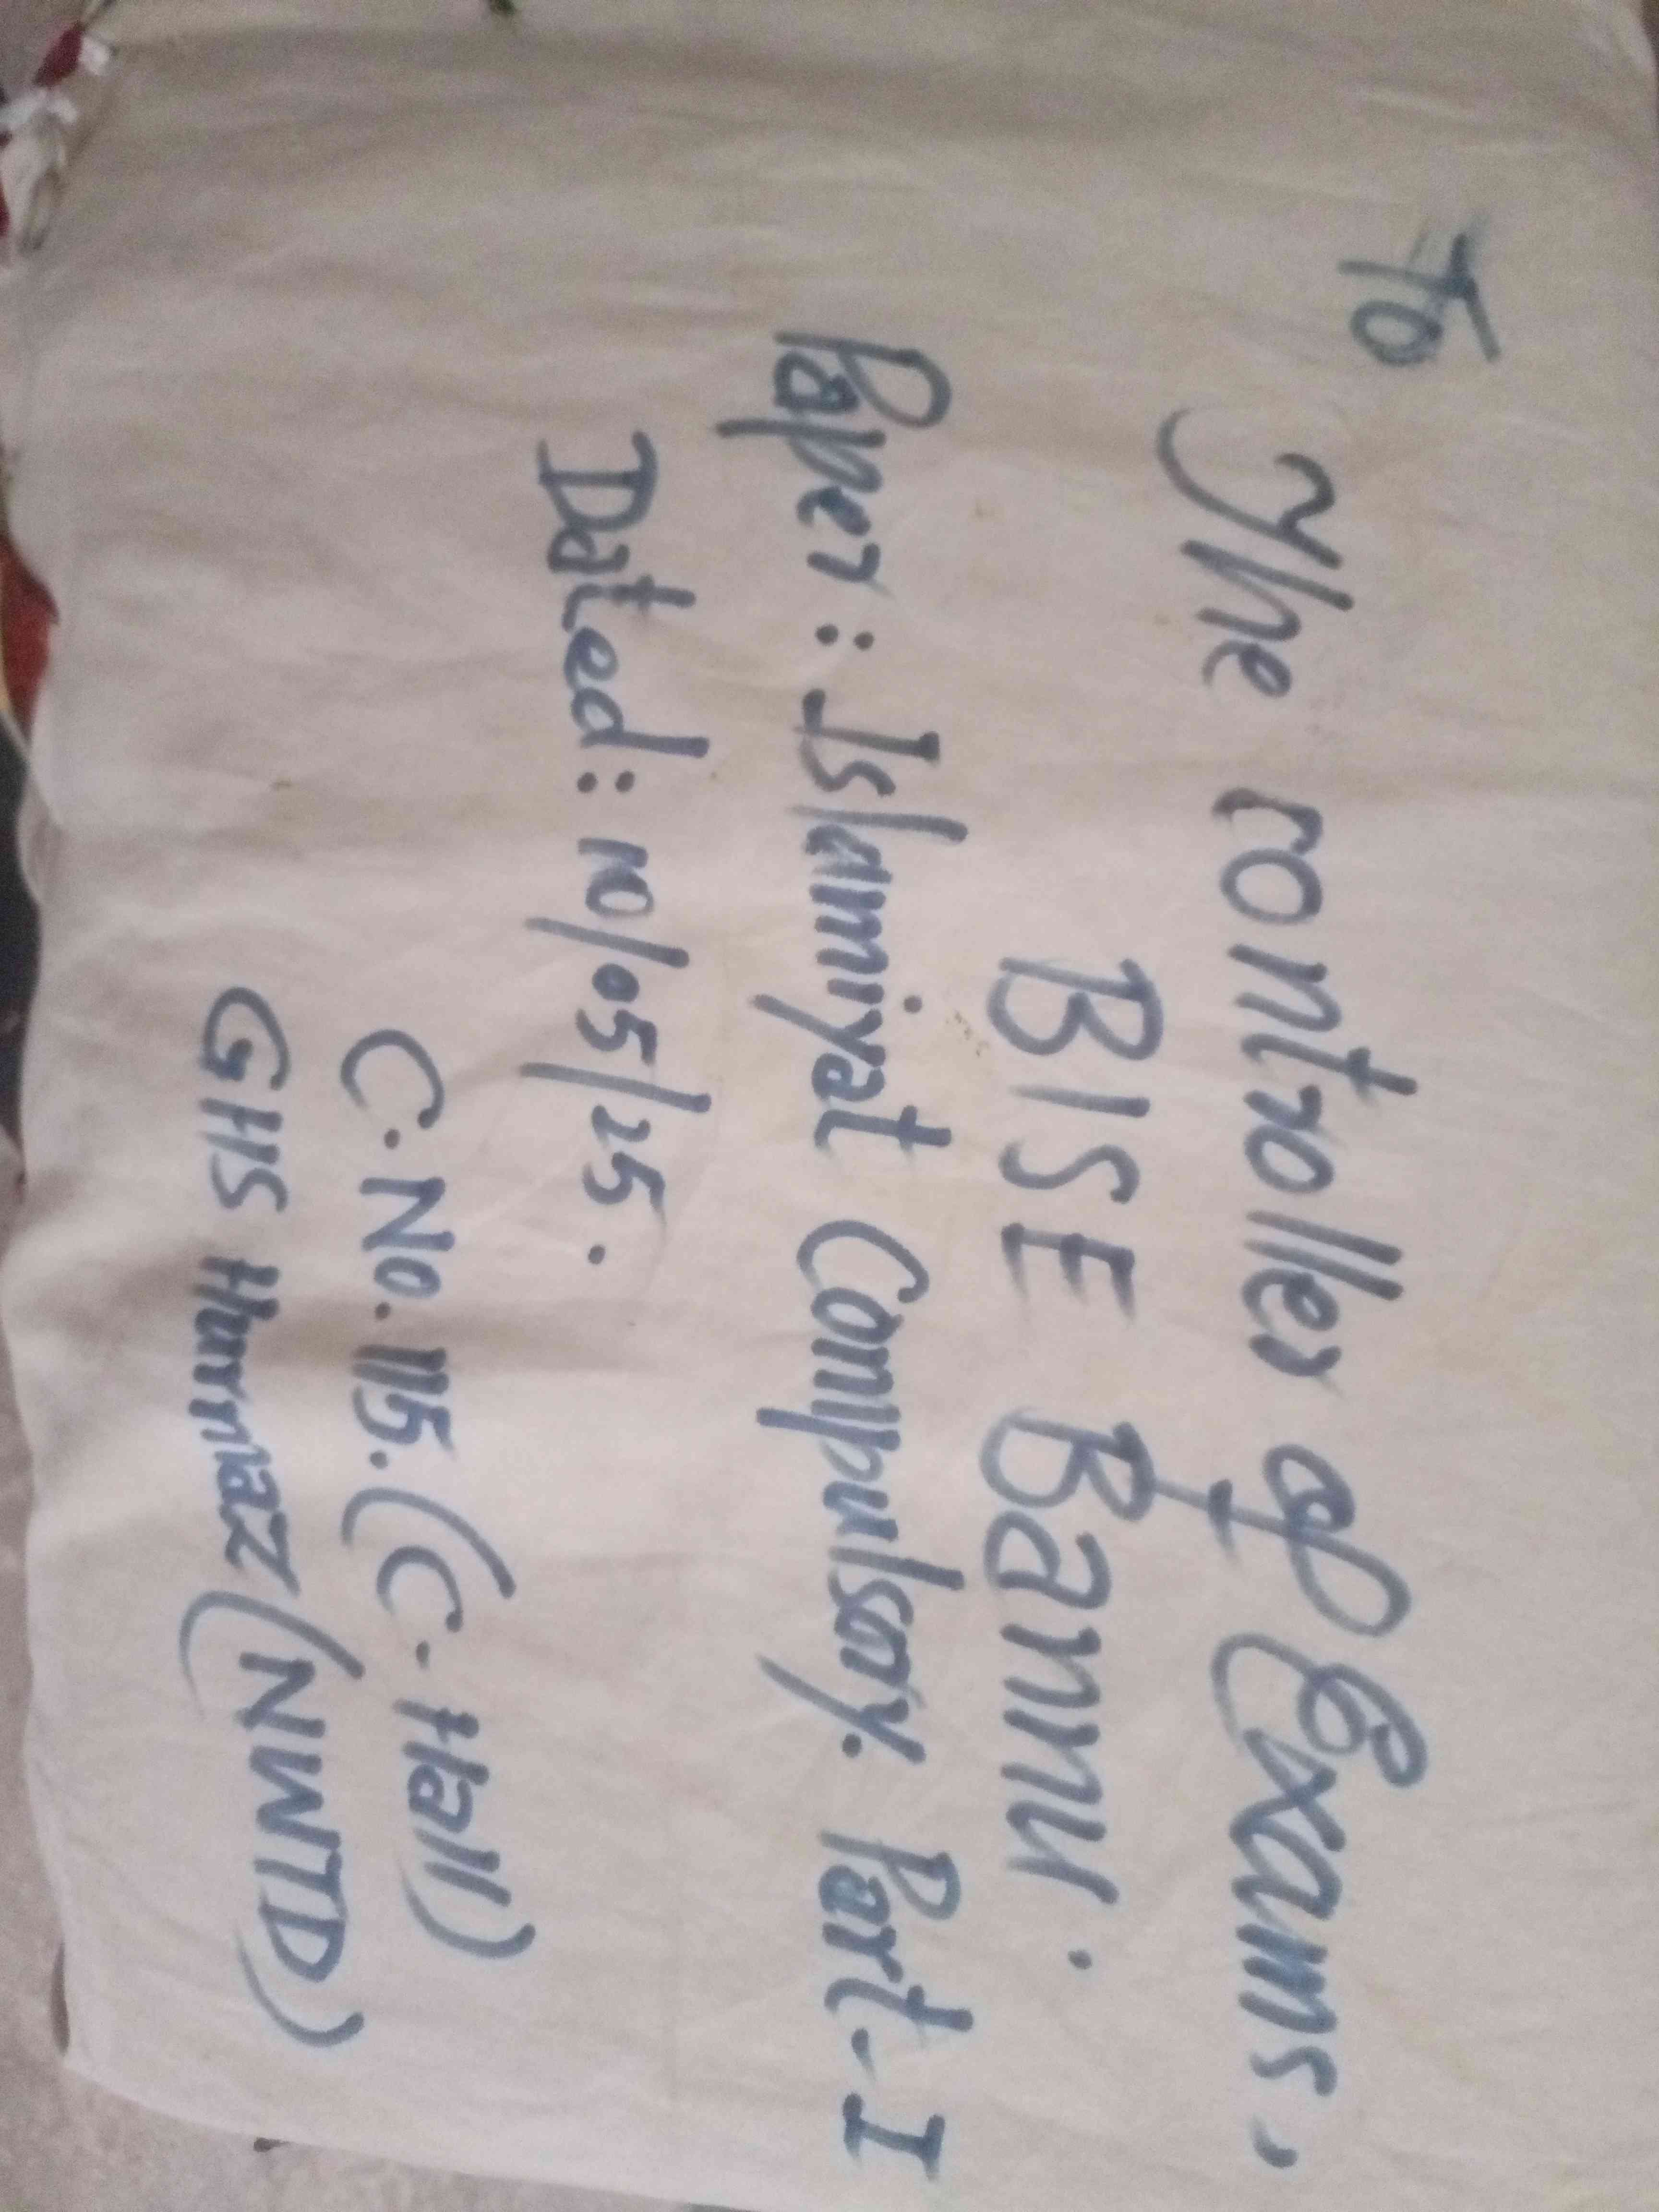 To
The controller of Exams,
BISE Bannu.
Paper: Islamiyat Compulsory. Part-I
Dated: 10/05/25.
C.No.115.(C.Hall)
GHS Hurmaz (NWTD)